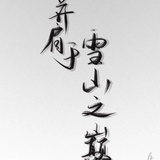 并肩于
雪山之巅